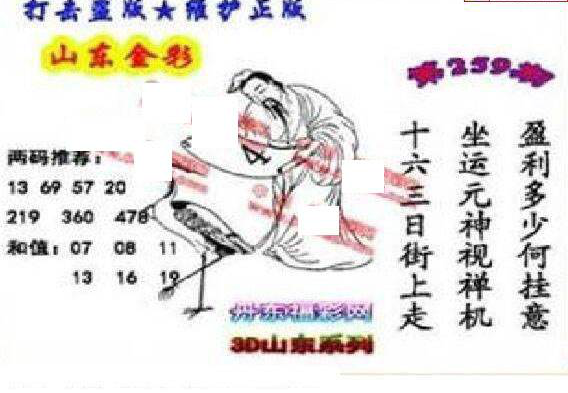 打击盗版★维护正版
山东金彩
第259期
盈利多少何挂意
坐运元神视禅机
十六三日街上走
两码推荐：
13 69 57 20
219 360 478
和值：07 08 11
13 16 19
丹东福彩网
3D山东系列